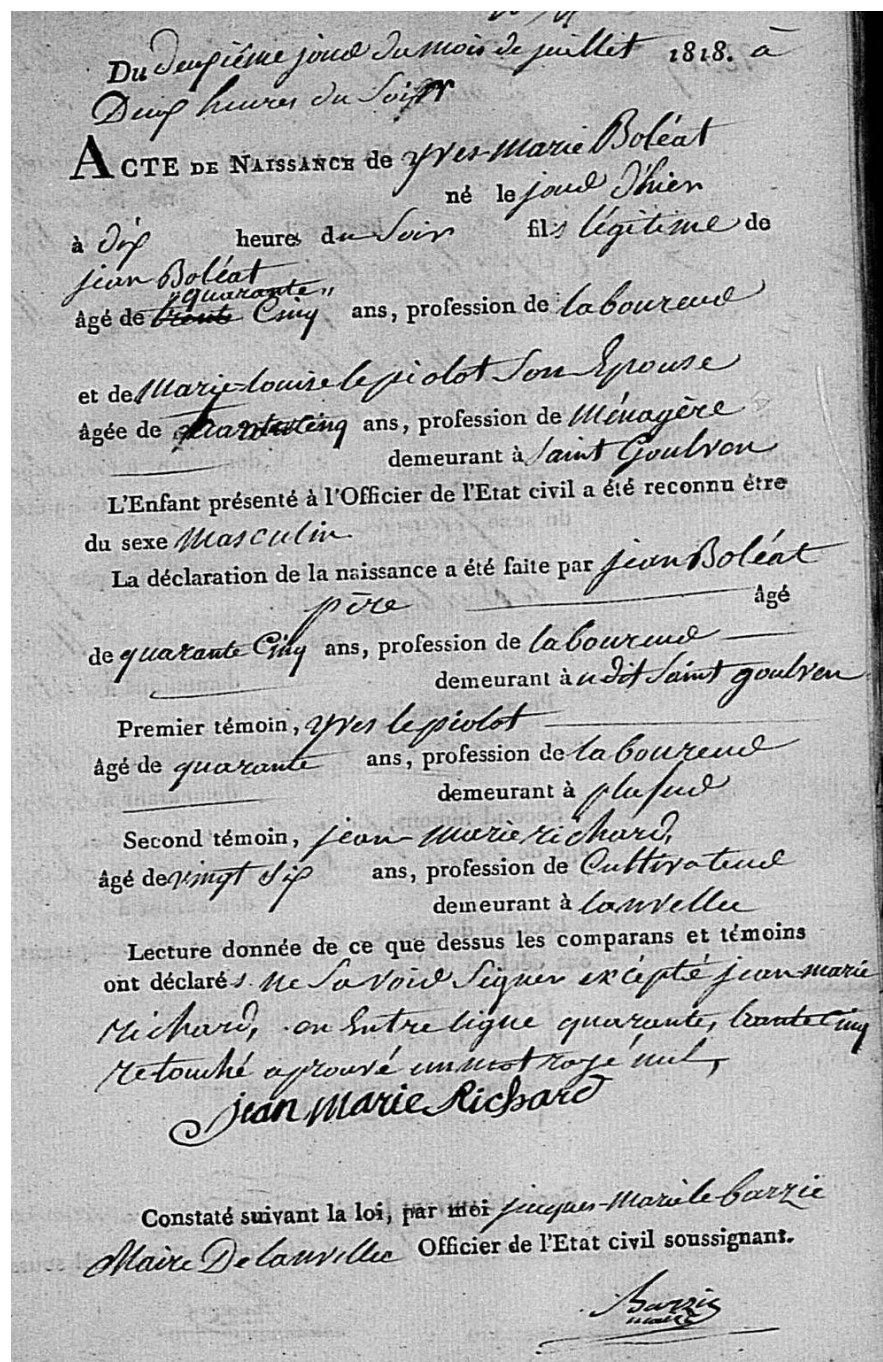 Du deuxième jour du mois de juillet 1818. à
Deux heures du Soir
ACTE DE NAISSANCE de Yves-Marie Boléat
né le jour d'hier
à dix heures du Soir fils légitime de
jean Boléat
"quarante"
âgé de trente Cinq ans, profession de laboureur
et de Marie-louise le piolot Son Epouse
âgée de trente Cinq ans, profession de Ménagère
demeurant à Saint Goulven
L'Enfant présenté à l'Officier de l'Etat civil a été reconnu être
du sexe Masculin
La déclaration de la naissance a été faite par jean Boléat
père âgé
de quarante Cinq ans, profession de laboureur
demeurant au dit Saint goulven
Premier témoin, Yves le piolot
âgé de quarante ans, profession de laboureur
demeurant à plusur
Second témoin, jean-marie richard,
âgé de vingt six ans, profession de Cultivateur
demeurant à lanvellec
Lecture donnée de ce que dessus les comparans et témoins
ont déclarés ne Savoir Signer excépté jean marie
richard, en Entre ligne quarante, trente Cinq
retouché aprouvé un mot rayé nul,
jean Marie Richard
Constaté suivant la loi, par moi jacques-Marie le barzic
Maire De lanvellec Officier de l'Etat civil soussignant.
Barzic
maire